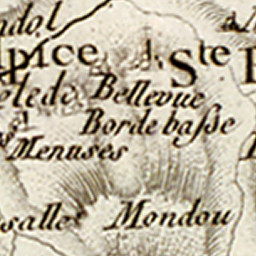 dol
pice
Ste
Bellevue
Borde baſse
Menuses
salles
Mondou